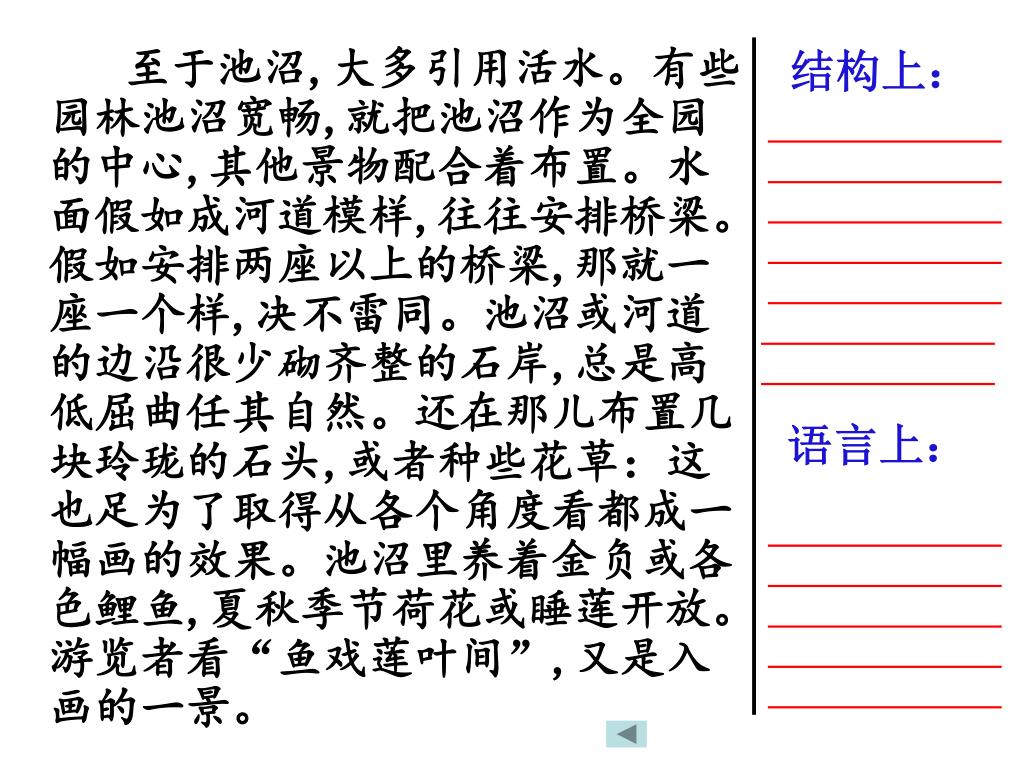 至于池沼,大多引用活水。有些
园林池沼宽畅,就把池沼作为全园
的中心,其他景物配合着布置。水
面假如成河道模样,往往安排桥梁。
假如安排两座以上的桥梁,那就一
座一个样,决不雷同。池沼或河道
的边沿很少砌齐整的石岸,总是高
低屈曲任其自然。还在那儿布置几
块玲珑的石头,或者种些花草：这
也足为了取得从各个角度看都成一
幅画的效果。池沼里养着金负或各
色鲤鱼,夏秋季节荷花或睡莲开放。
游览者看“鱼戏莲叶间”,又是入
画的一景。
结构上：
语言上：